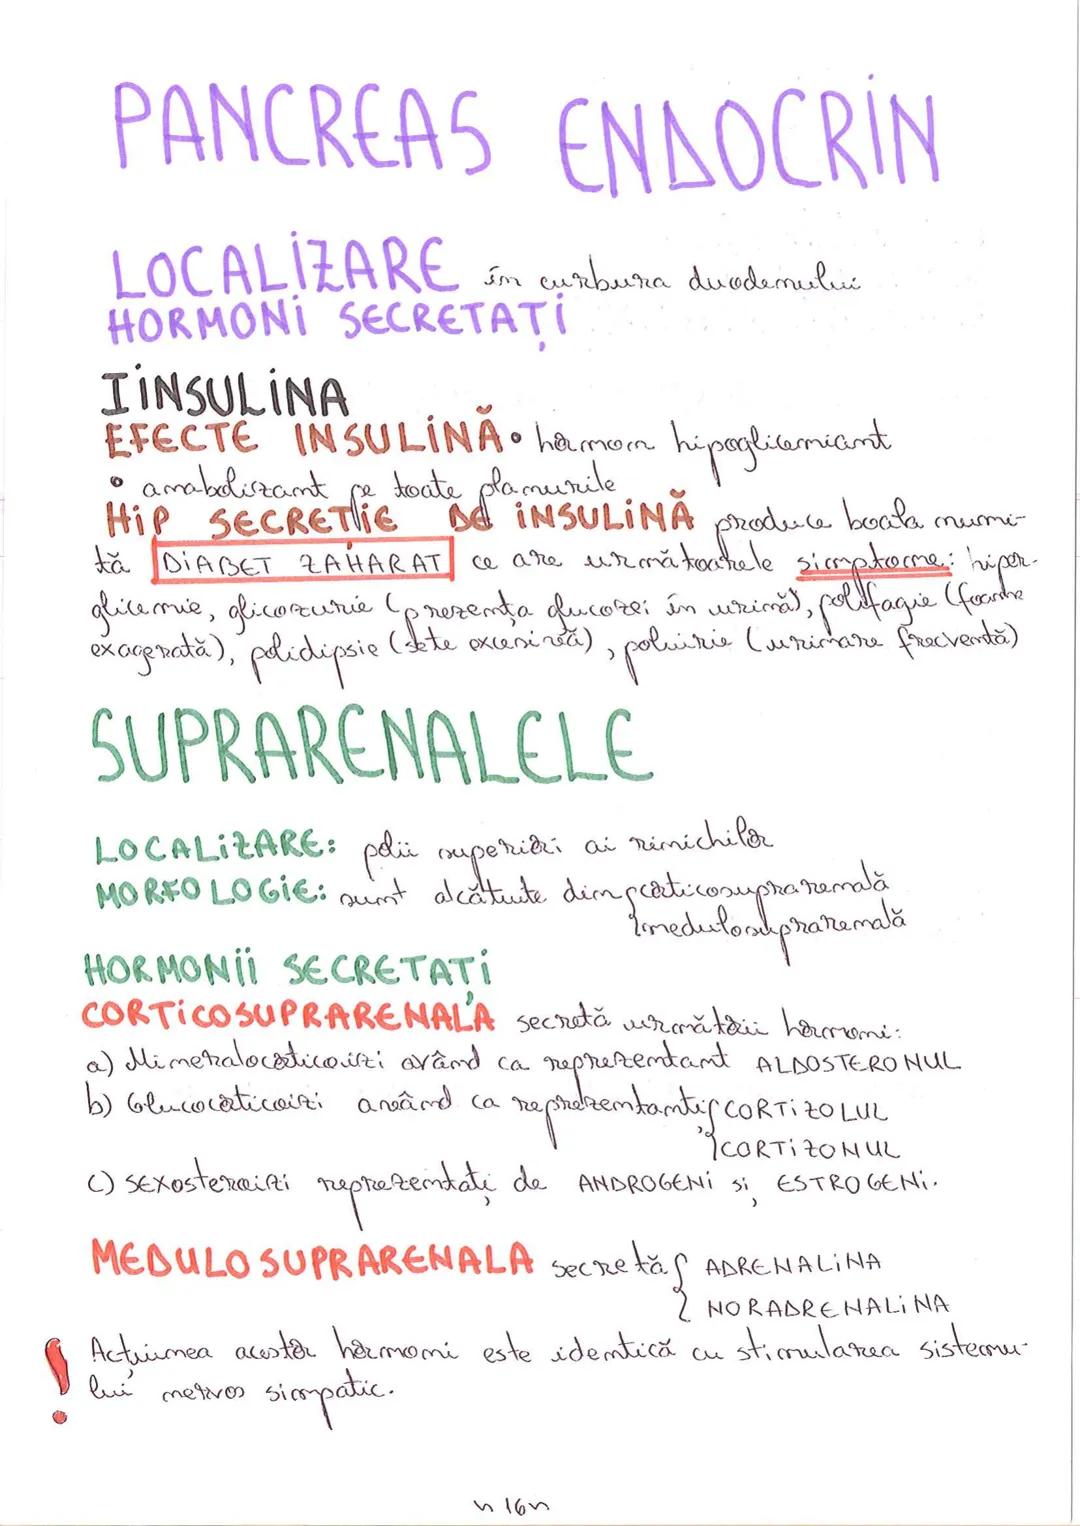 PANCREAS ENDOCRIN
LOCALIZARE în curbura duodenului
HORMONI SECRETAȚI
I INSULINA
EFECTE INSULINĂ • hormon hipoglicemiant
• anabolizant pe toate planurile
HIP SECREȚIE DE INSULINĂ produce boala numi-
tă DIABET ZAHARAT ce are următoarele simptome: hiper-
glicemie, glicozurie (prezența glucozei în urină), polifagie (foame
exagerată), polidipsie (sete excesivă), poliurie (urinare frecventă)
SUPRARENALELE
LOCALIZARE: polii superiori ai rinichilor
MORFOLOGIE: sunt alcătuite din { corticosuprarenală
{ medulosuprarenală
HORMONII SECRETAȚI
CORTICOSUPRARENALA secretă următorii hormoni:
a) Mineralocorticoizi având ca reprezentant ALDOSTERONUL
b) Glucocorticoizi având ca reprezentanți { CORTIZOLUL
{ CORTIZONUL
c) SEXosteroizi reprezentați de ANDROGENI și ESTROGENI.
MEDULOSUPRARENALA secretă { ADRENALINA
{ NORADRENALINA
! Acțiunea acestor hormoni este identică cu stimularea sistemu-
lui nervos simpatic.
~ 16 ~